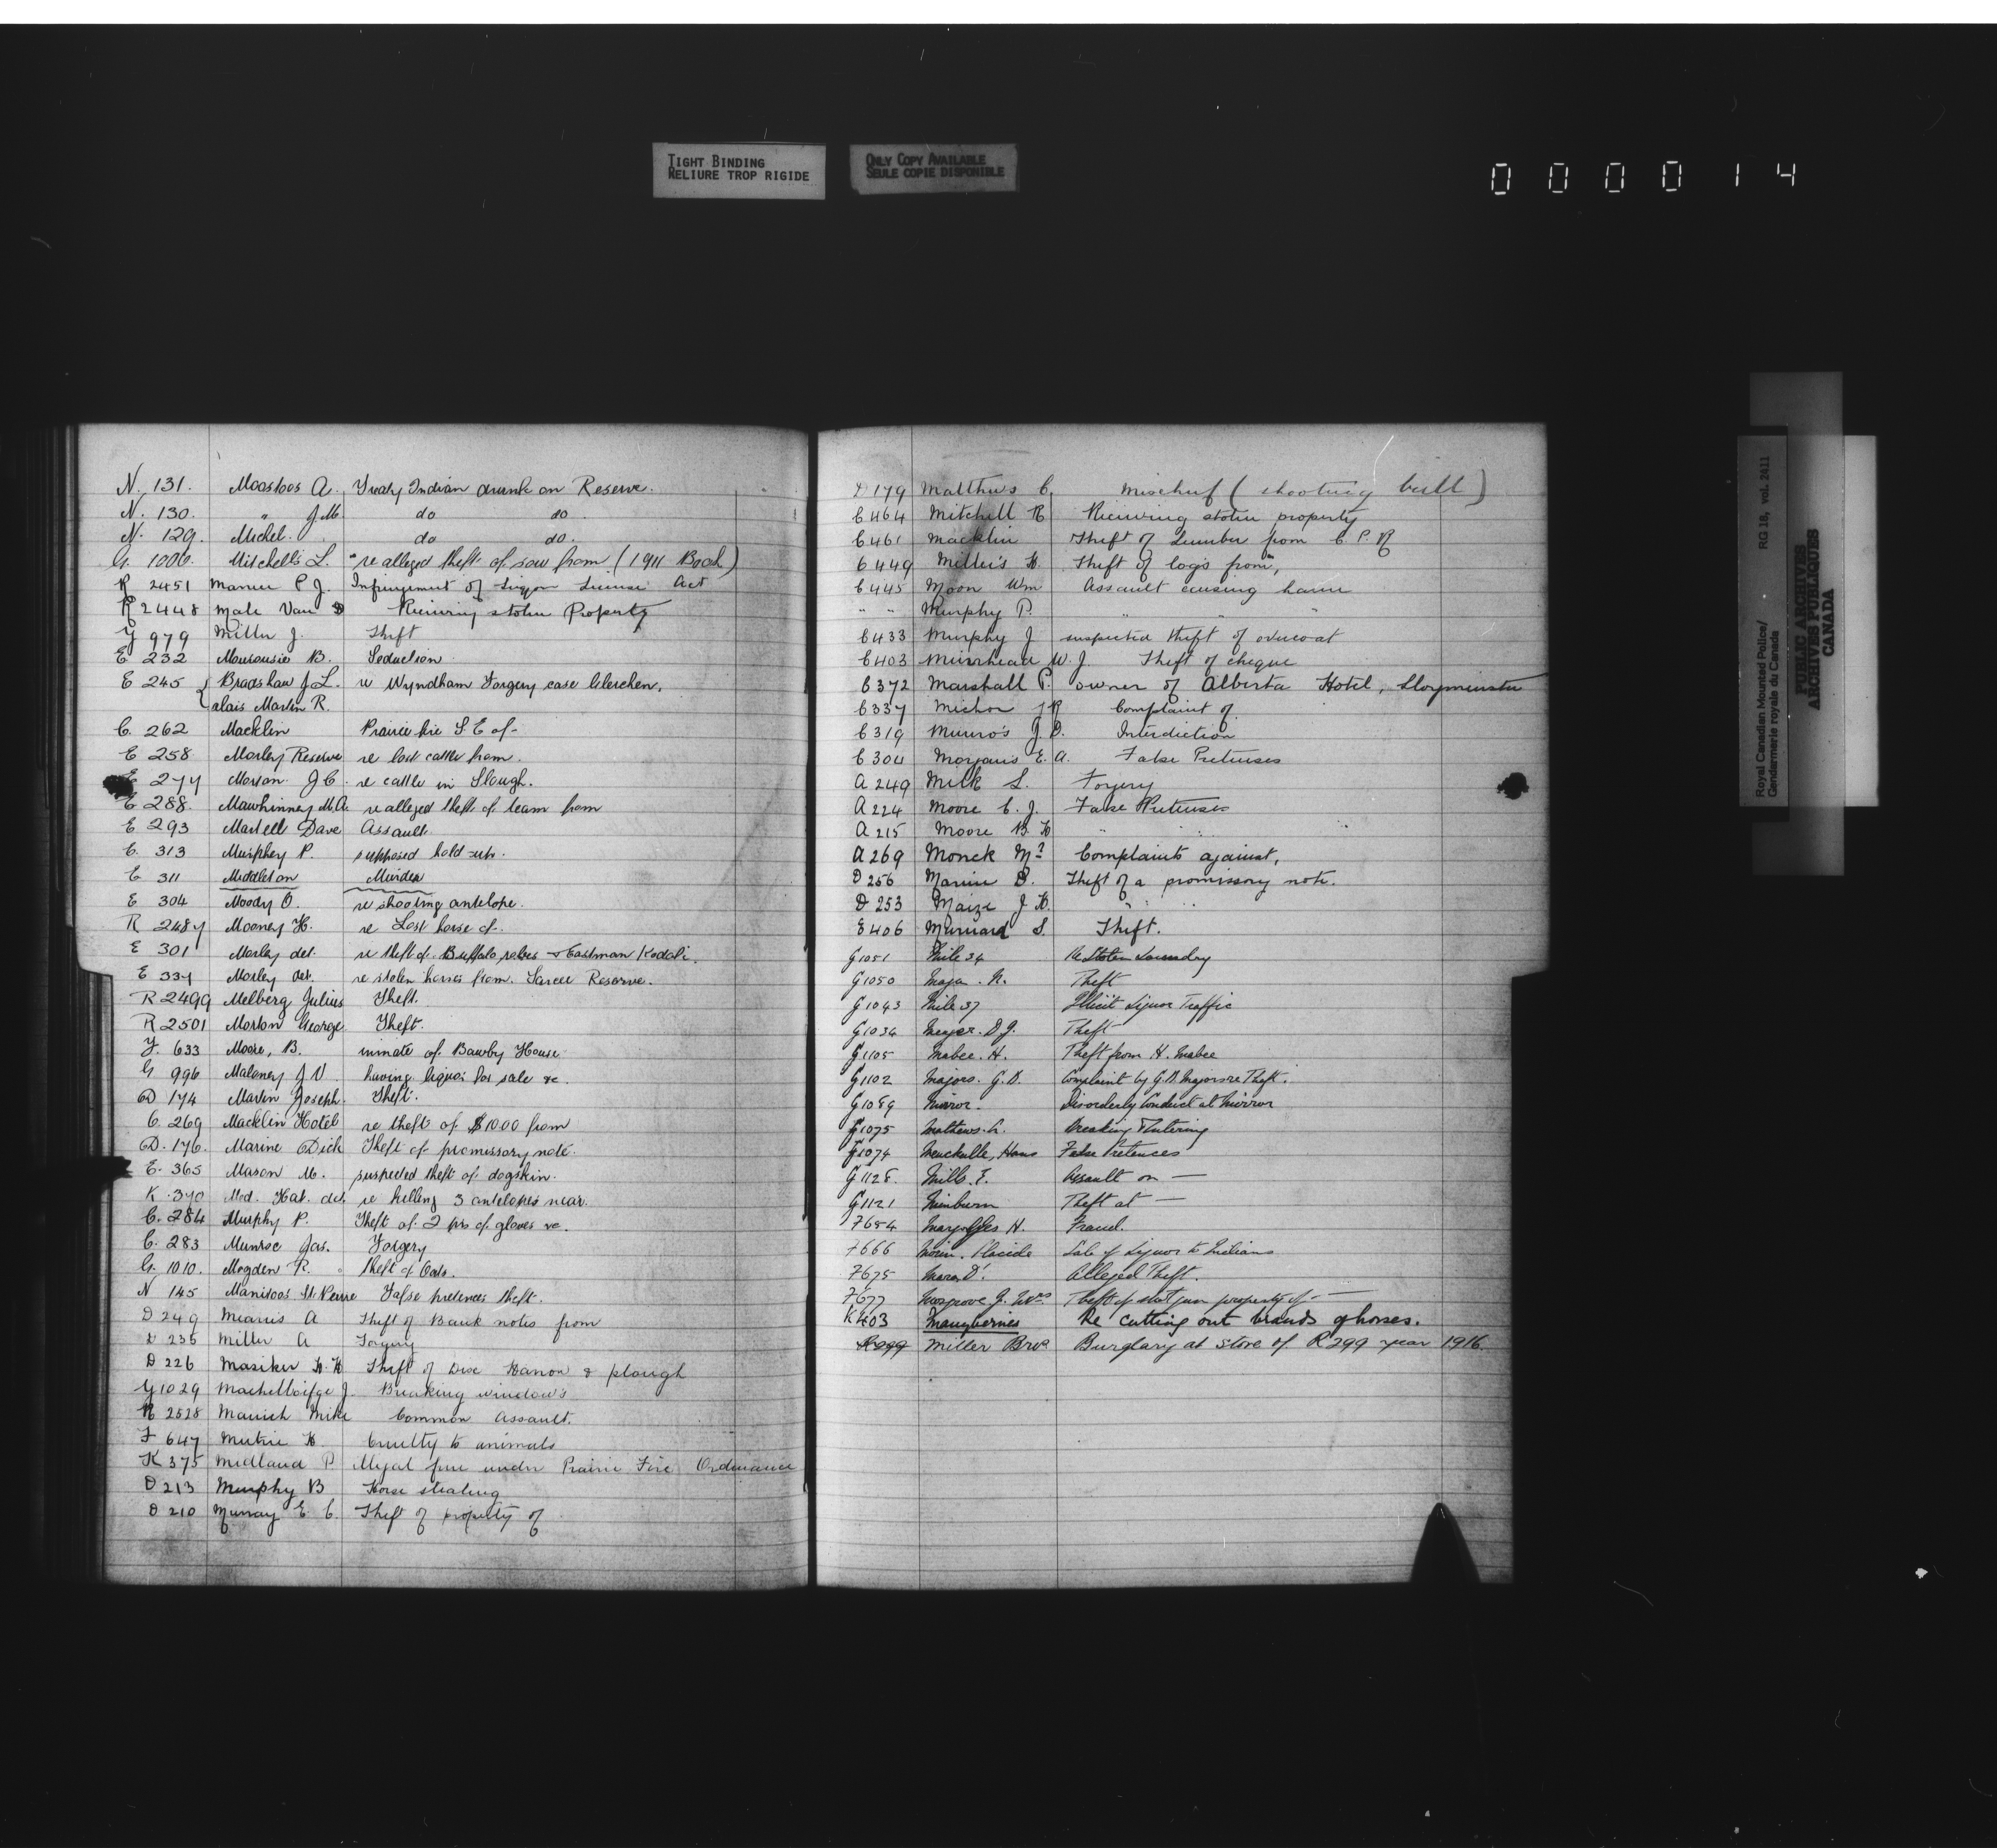 TIGHT BINDING
RELIURE TROP RIGIDE
ONLY COPY AVAILABLE
SEULE COPIE DISPONIBLE
000014
N. 131. Moostoos A. Treaty Indian drunk on Reserve.
N. 130. " J.M. do do
N. 129. Michel. do do.
G. 1006. Mitchell's L. re alleged theft of sow from (1911 Book)
R 2451 P J. Infringement of Liquor License Act
R 2448 Male Van D Receiving stolen Property
G 979 Miller J. Theft
E 232 B. Seduction
E 245 Bradshaw J L. re Wyndham Forgery case Gleichen.
alais Martin R.
C. 262 Macklin Prairie fire S. E of-
E 258 Morley Reserve re lost cattle from.
E 277 J C. re cattle in Slough.
E 288. Mawhinney M.A. re alleged theft of team from
E 293 Martell Dave Assault.
C. 313 Murphey P. supposed hold-up.
C 311 Middleton Murder
E 304 Moody O. re shooting antelope.
R 2487 Mooney H. re Lost horse of.
E 301 Morley det. re theft of Buffalo robes & Eastman Kodak.
E 334 Morley det. re stolen horses from Sarcee Reserve.
R 2499 Melberg Julius Theft.
R 2501 Morton George Theft.
G. 633 Moore, B. inmate of Bawby House
G 996 Maloney J V. having liquor for sale &c.
D 174 Martin Joseph. Theft.
C. 269 Macklin Hotel re theft of $1000 from
D. 176. Marine Dick Theft of promissory note.
E. 365 Mason M. suspected theft of dogskin.
K 370 Med. Hat. det. re killing 3 antelopes near.
C. 284 Murphy P. Theft of 2 prs of gloves &c.
C. 283 Munroe Jas. Forgery
G. 1010. Mogden R. theft of Oats.
N 145 Manitoos St. Pierre False pretences theft.
D 249 Mearis A Theft of Bank notes from
D 235 Miller A Forgery
D 226 Masiker H. H Theft of Disc Harrow & plough
G 1029 J. Breaking windows
R 2528 Manich Mike Common Assault.
F 647 Mutrie H Cruelty to animals
K 375 Midland P Illegal fire under Prairie Fire Ordinance
D 213 Murphy B Horse stealing
D 210 Murray E. C. Theft of property of
D 179 Matthews C, Mischief (shooting bull)
C 464 Mitchell R Receiving stolen property
C 461 Macklin Theft of Lumber from C. P. R
C 449 Miller's H. Theft of logs from,
C 445 Moon Wm Assault causing harm
" " Murphy P. " " "
C 433 Murphy J suspected theft of overcoat
C 403 Muirhead W. J. Theft of cheque
C 372 Marshall P. owner of Alberta Hotel, Lloyminster
C 337 Michon J R Complaint of.
C 319 Munro's J. D. Interdiction
C 304 Morgan's E. A. False Pretenses
A 249 Milk L. Forgery
A 224 Moore C. J. False Pretenses
A 215 Moore B. H " "
A 269 Monck Mr Complaints against,
D 256 Marine D. Theft of a promissory note.
D 253 Maize J H. " " "
E 406 S. Theft.
G 1051 Mile 34 Re Stolen Laundry
G 1050 Maja. N. Theft
G 1043 Mile 37 Illicit Liquor Traffic
G 1034 Meyer. D J. Theft
G 1105 Mabee. H. Theft from H. Mabee
G 1102 Majors. G. D. Complaint by G. D. Majors re Theft.
G 1089 Mirror. Disorderly Conduct at Mirror
G 1075 Mathews. Breaking & Entering
G 1074 Hans False Pretences
G 1128. Mills. F. Assault on —
G 1121 Minburn Theft at —
F 654 H. Fraud.
F 666 Morin. Placide Sale of Liquor to Indians
F 675 Alleged Theft.
F 677 Mosgrove J. Mrs. Theft of shot gun property of —
K 403 Manyberries Re cutting out brands of horses.
R 299 Miller Bros Burglary at store of R 299 year 1916.
Royal Canadian Mounted Police/
Gendarmerie royale du Canada
RG 18, vol. 2411
PUBLIC ARCHIVES
ARCHIVES PUBLIQUES
CANADA